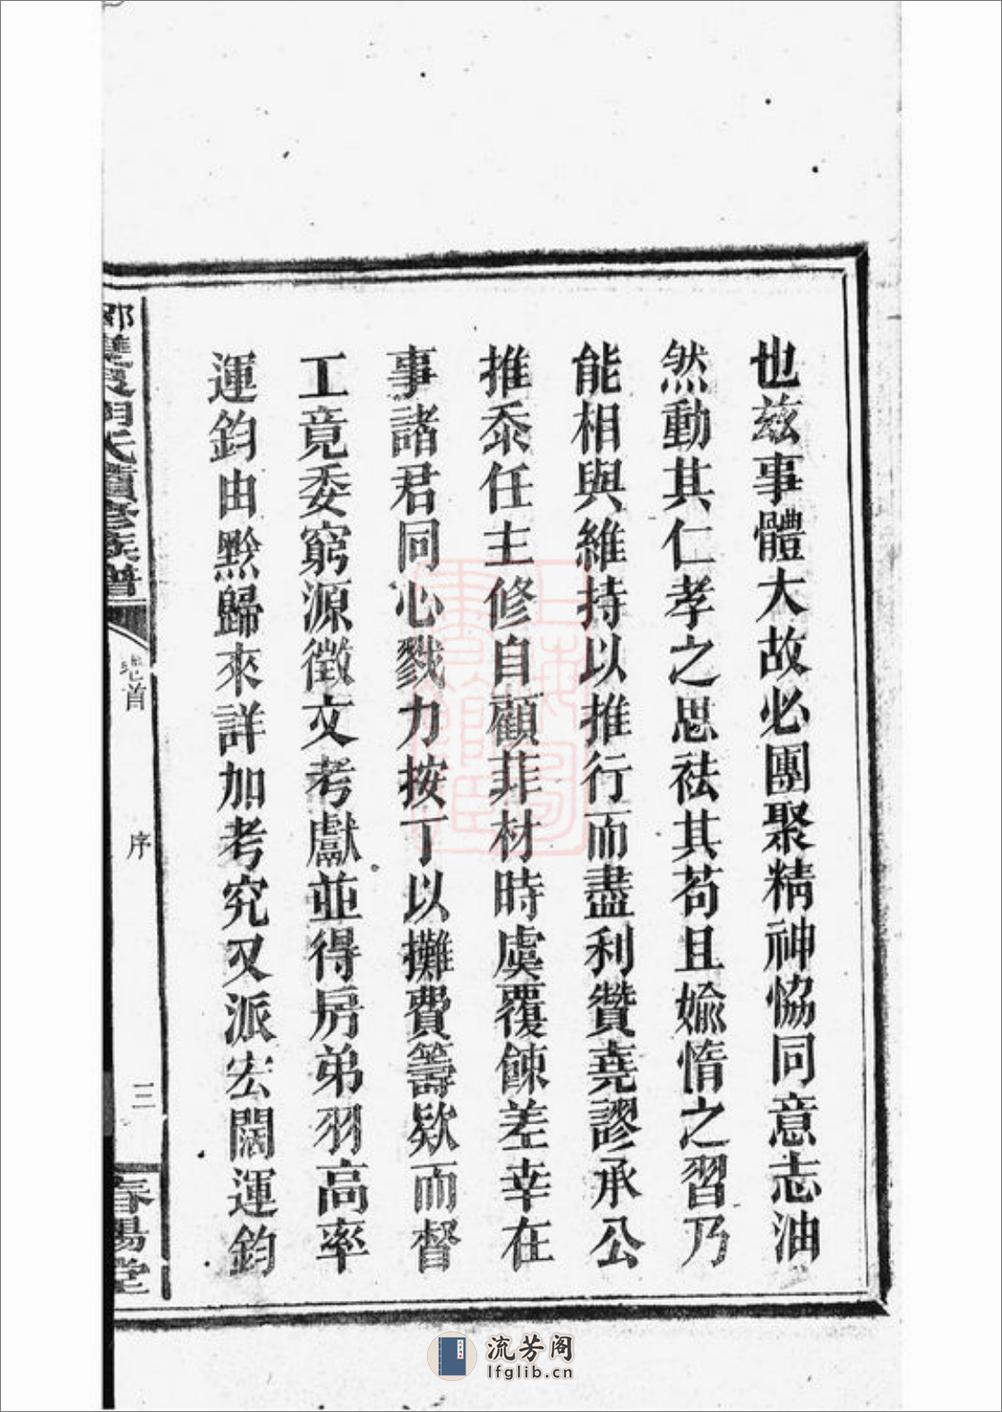 也茲事體大故必團聚精神恊同意志油
然動其仁孝之思祛其苟且媮惰之習乃
能相與維持以推行而盡利贊堯謬承公
推忝任主修自顧菲材時虞覆餗差幸在
事諸君同心戮力按丁以攤費籌欵而督
工竟委窮源徵文考獻並得房弟羽高率
運鈞由黔歸來詳加考究又派宏闊運鈞
氏續修族譜
卷首
序
三
春陽堂
上海圖書館藏
流芳阁
lfglib.cn